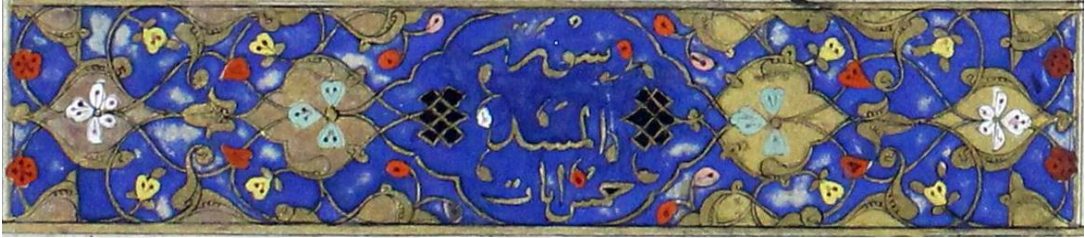 سورة
المسد
خمس ايات